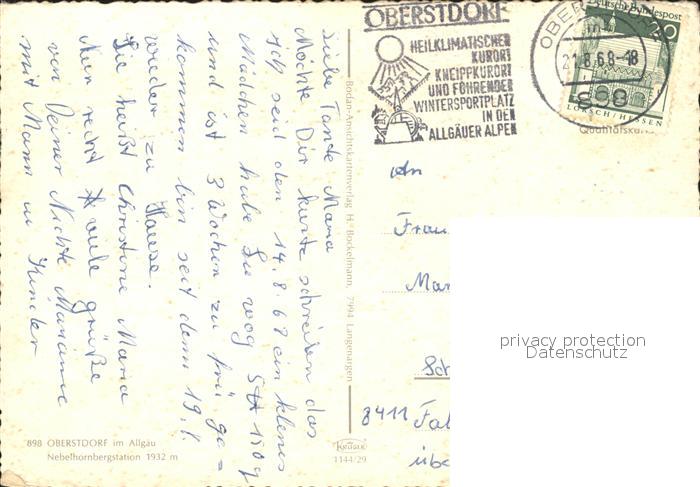 OBERSTDORF
HEILKLIMATISCHER
KURORT
KNEIPPKURORT
UND FÜHRENDER
WINTERSPORTPLATZ
IN DEN
ALLGÄUER ALPEN
OBER
21.8.68-18
898
Deutsche Bundespost
20
LORSCH/HESSEN
Qualitätskarte
Liebe Tante Maria
Möchte Dir kurtz schreiben das
ich seid den 14.8.68 ein kleines
Mädchen habe Sie wog 5 150g
und ist 3 Wochen zu frü ge=
kommen bin seit dem 19.8.
wieder zu Hause.
Sie heißt Christine Maria
Nun recht viele grüße
von Deiner Nichte Marianne
mit Mann u Kinder
Bodan-Ansichtskartenverlag H. Bockelmann, 7994 Langenargen
An
Frau
Mar
Sch
8411 Fal
übe
898 OBERSTDORF im Allgäu
Nebelhornbergstation 1932 m
KRÜGER
1144/29
privacy protection
Datenschutz